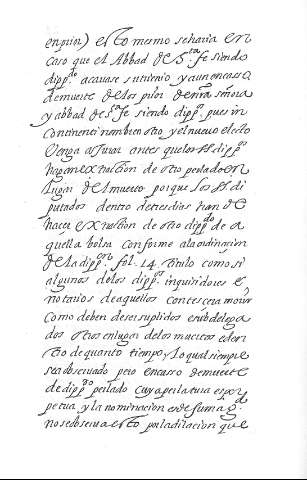 en prior) esto mesmo se haria en
caso que el Abbad de S.ta fe siendo
dipp.do acavase su trienio y aun en caso
de muerte de los prior de nra señora
y abbad de S.ta fe siendo dipp.s, pues in
continenti nombien otro, y el nuevo electo
venga a jurar antes que los S.S dipp.s
hagan extraction de otro perlado en
lugar del muerto, porque los S.S di
putados dentro de tres dias han de
hacer extraction de otro dipp.do de a
quella bolsa conforme a la ordinacion
de la dipp.on fol. 14. Titulo como si
algunos de los dipp.s inquisidores e,
notarios de aquellos contescera morir
como deben deser suplidos e subdelega
dos otros en lugar de los muertos e den
tro de quanto tiempo, Lo qual siempre
sea observado pero en caso de muerte
de dipp.do perlado cuya perlatura es per
petua y la nominacion es de su mag.d
no se observa esto por la dilacion que